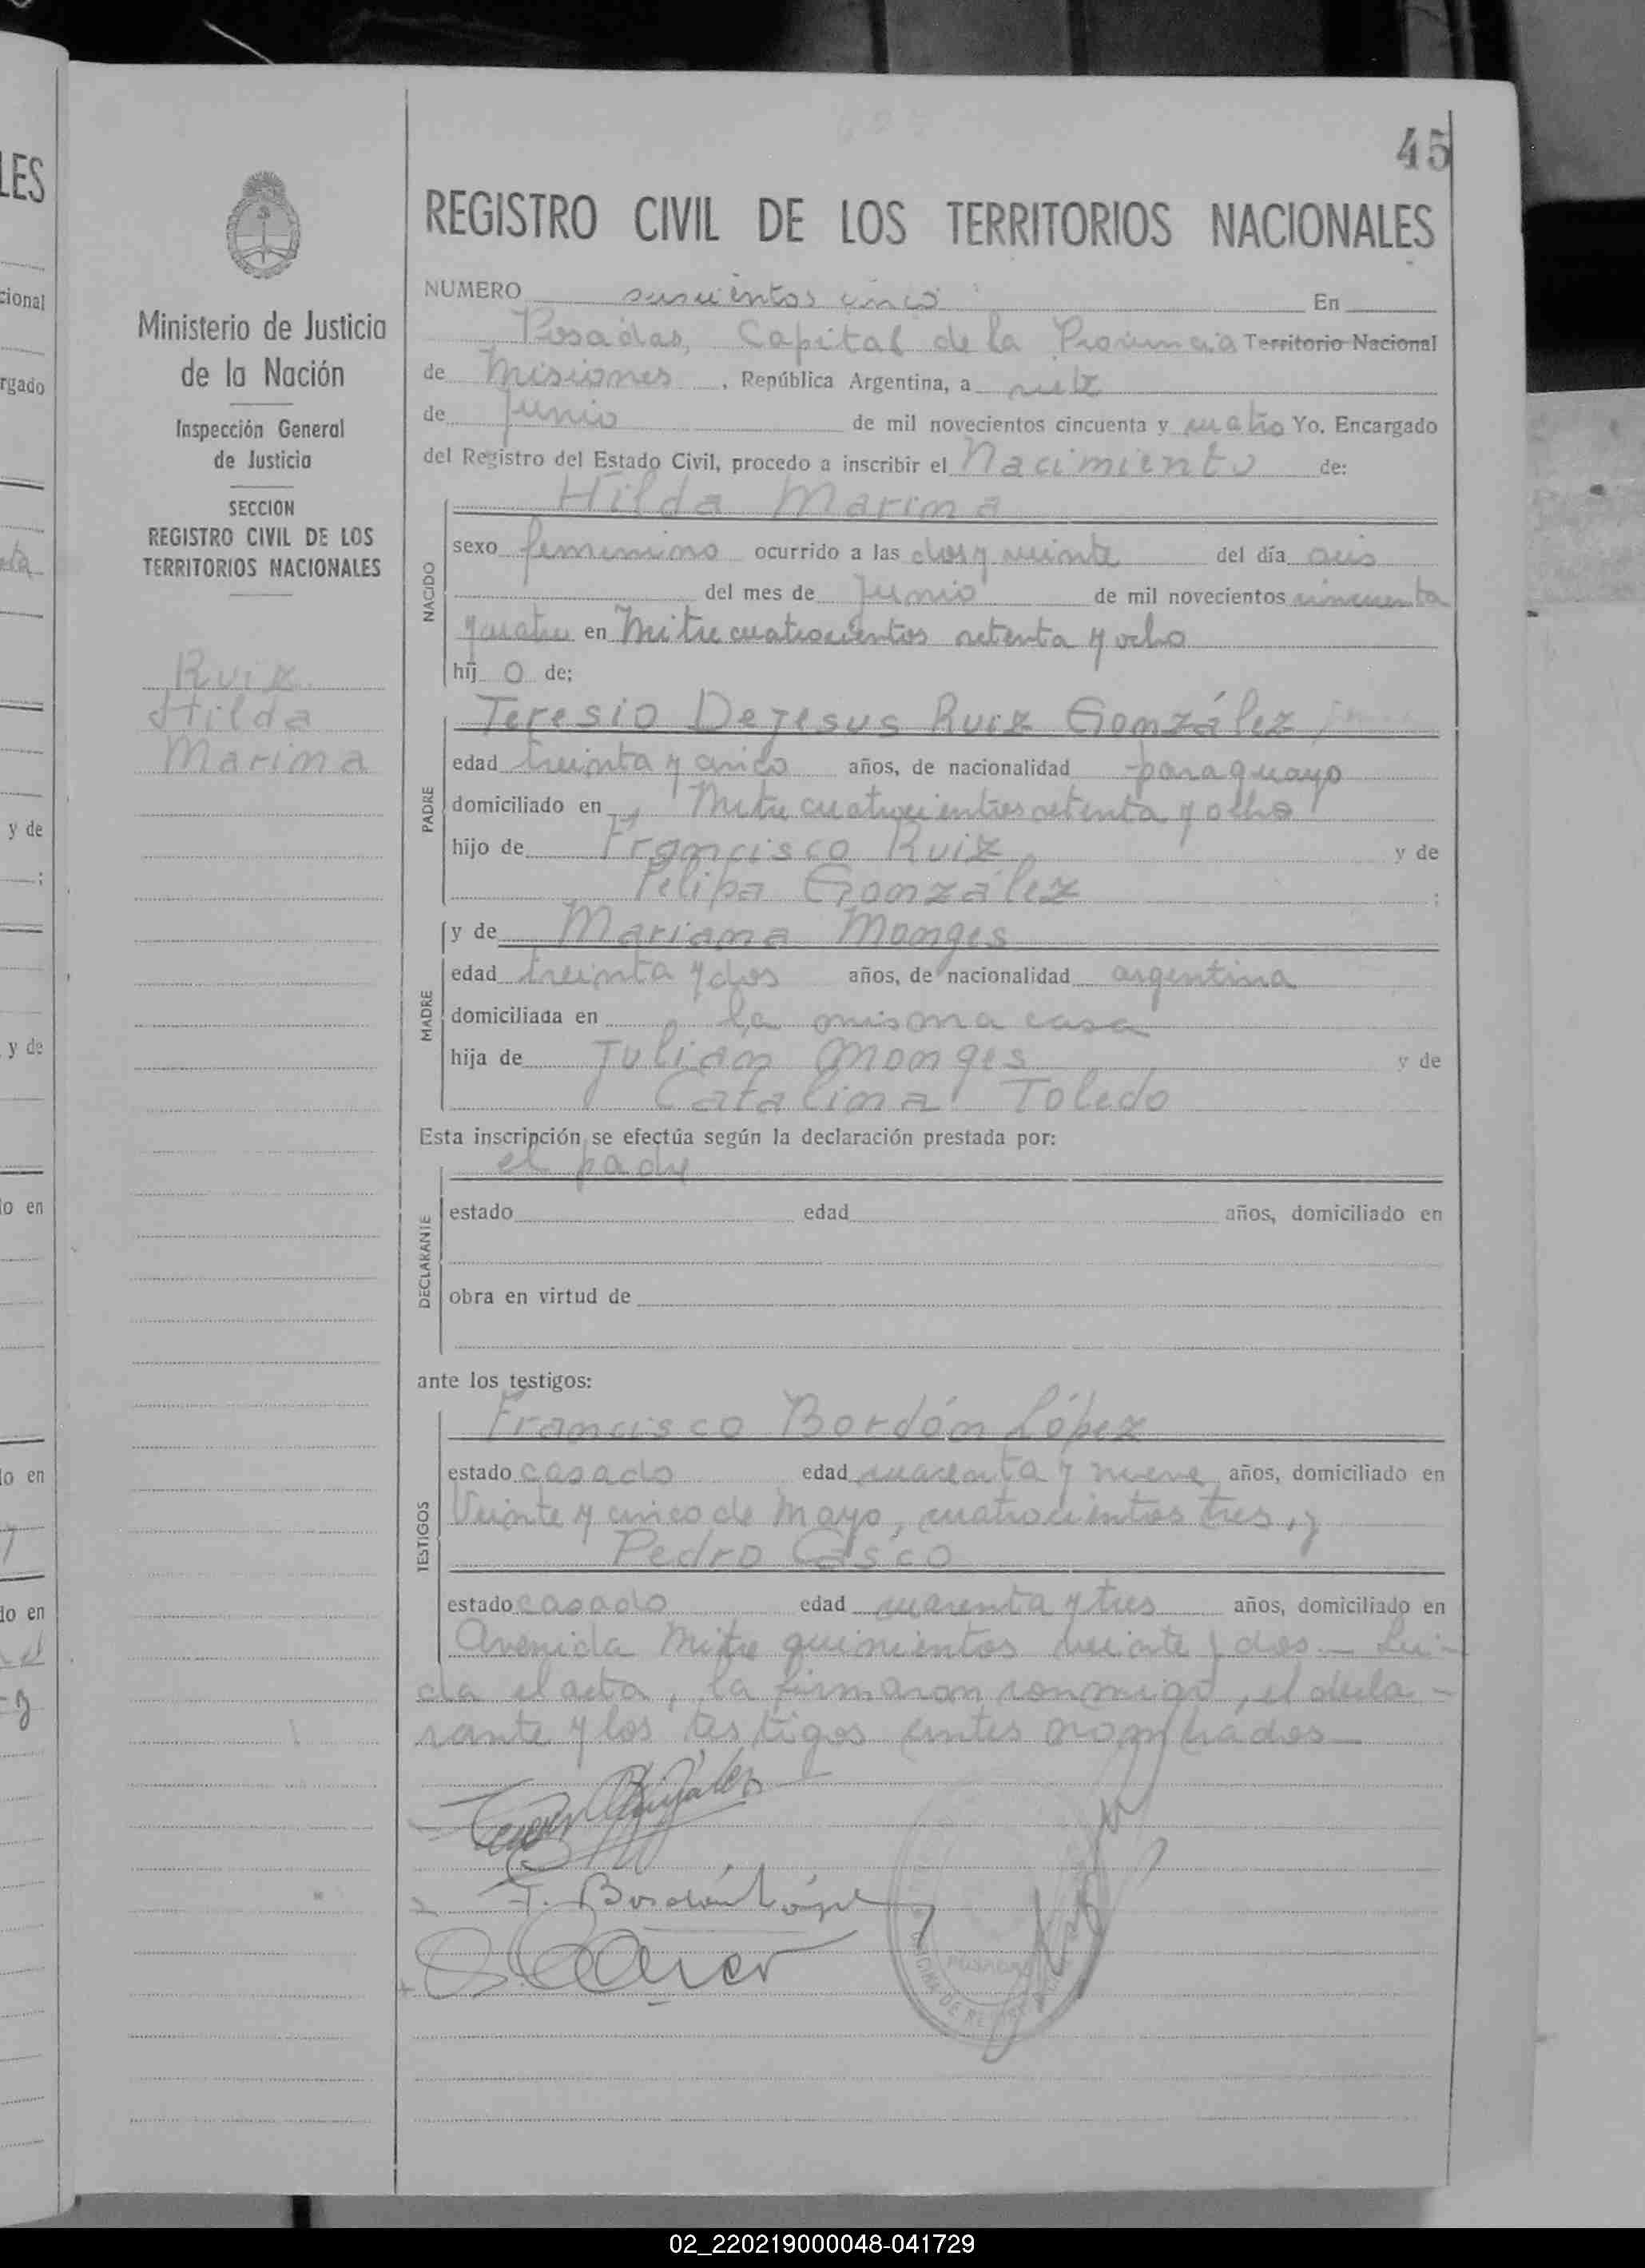 45
LES
REGISTRO CIVIL DE LOS TERRITORIOS NACIONALES
cional
rgado
y de
y de
lo en
lo en
lo en
Ministerio de Justicia
de la Nación
Inspección General
de Justicia
SECCION
REGISTRO CIVIL DE LOS
TERRITORIOS NACIONALES
Ruiz
Hilda
Marina
NUMERO seiscientos cinco En
Posadas, Capital de la Provincia Territorio Nacional
de Misiones, República Argentina, a siete
de Junio de mil novecientos cincuenta y cuatro Yo, Encargado
del Registro del Estado Civil, procedo a inscribir el Nacimiento de:
NACIDO
Hilda Marina
sexo femenino ocurrido a las dos y veinte del día seis
del mes de Junio de mil novecientos cincuenta
y cuatro en Mitre cuatrocientos setenta y ocho
hij o de;
PADRE
Teresio Dejesus Ruiz González
edad treinta y cinco años, de nacionalidad paraguayo
domiciliado en Mitre cuatrocientos setenta y ocho
hijo de Francisco Ruiz y de
Felipa González ;
MADRE
y de Mariana Monges
edad treinta y dos años, de nacionalidad argentina
domiciliada en la misma casa
hija de Julián Monges y de
Catalina Toledo
Esta inscripción se efectúa según la declaración prestada por:
DECLARANTE
el padre
estado edad años, domiciliado en
obra en virtud de
ante los testigos:
TESTIGOS
Francisco Bordón López
estado casado edad cuarenta y nueve años, domiciliado en
Veinte y cinco de Mayo, cuatrocientos tres, y
Pedro Casco
estado casado edad cuarenta y tres años, domiciliado en
Avenida Mitre quinientos veinte y dos — Leí-
da el acta, la firmaron conmigo, el decla-
rante y los testigos antes nombrados —
F. Bordón López
POSADAS
02_220219000048-041729